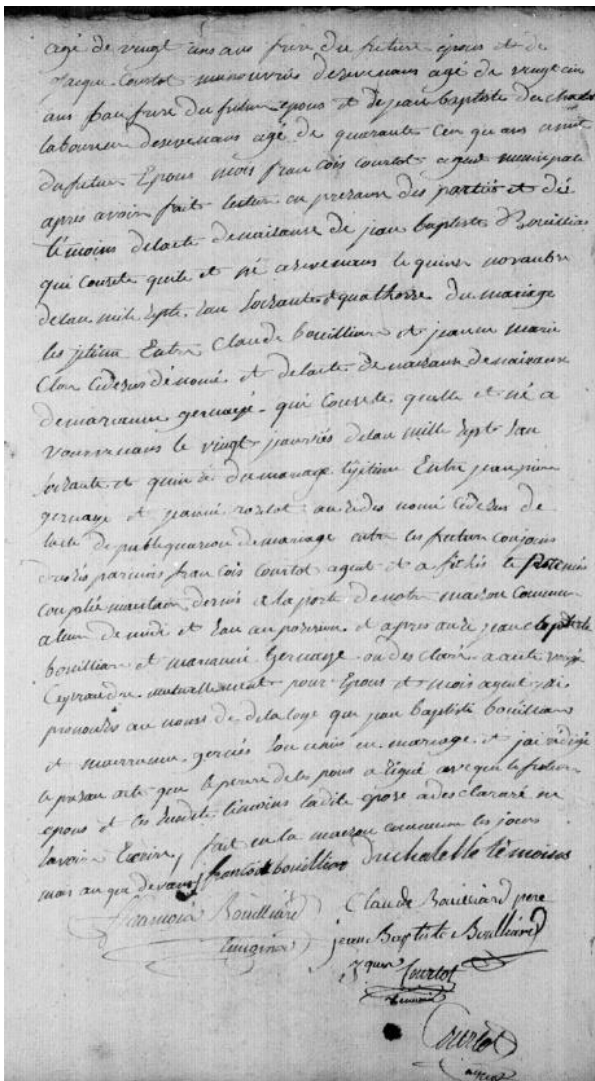 agé de vingt uns ans frere du future épous et de
Jacque Courtot manouvriés desevenans agé de vingt cin
ans frere du futur epous et de jean baptiste duchatel
laboureur desevenans agé de quarante cen qu ans amit
du futur Epous mois francois Courtot agent municipale
apres avoir fait lecture en presance des partiés et dé
témoins delacte denaisance de jean baptiste Bouillian
qui consete quile et né asevenans le quinse novanbre
delan mile septe san soisante et quathorse du mariage
les jetime Entre Claude bouillian et jeanne marie
Clor cidesus dénomé et delacte de naisance denaisance
demarianne gervaise qui consete quelle et né a
vourvenans le vingt janvriés delan mille sept san
soisante et quinse du mariage lejetime Entre jean pierre
gervaise et jeanne roslot ausides nomé cidesus de
lacte de publiquasion demariage entre les futur conjoins
drésés parmois francois Courtot agent et afichés le
maintain dernié a la porte denotre maison commun
a leur de midi et san auposision et apres jean baptiste
bouillian et marianne Gervaise ondesclaré a aute voix
Ceprandre mutuellement pour Epous et mois agent jai
pronomsés au noms de delaloye que jean baptiste bouillian
et marianne gervés son unis en mariage et jai rédigé
le presan acte que le perre delepous a signé aveque le futur
epous et les susdits témoins ladite epose adesclararé ne
savoir Ecrire, fait en la maison commune les jours
mois an que devans francois bouillian duchatelle témoins
francois Bouilliard Claude Bouilliard pere
temoins jean Baptiste Bouilliard
Courtot
temoin
Courtot
agent